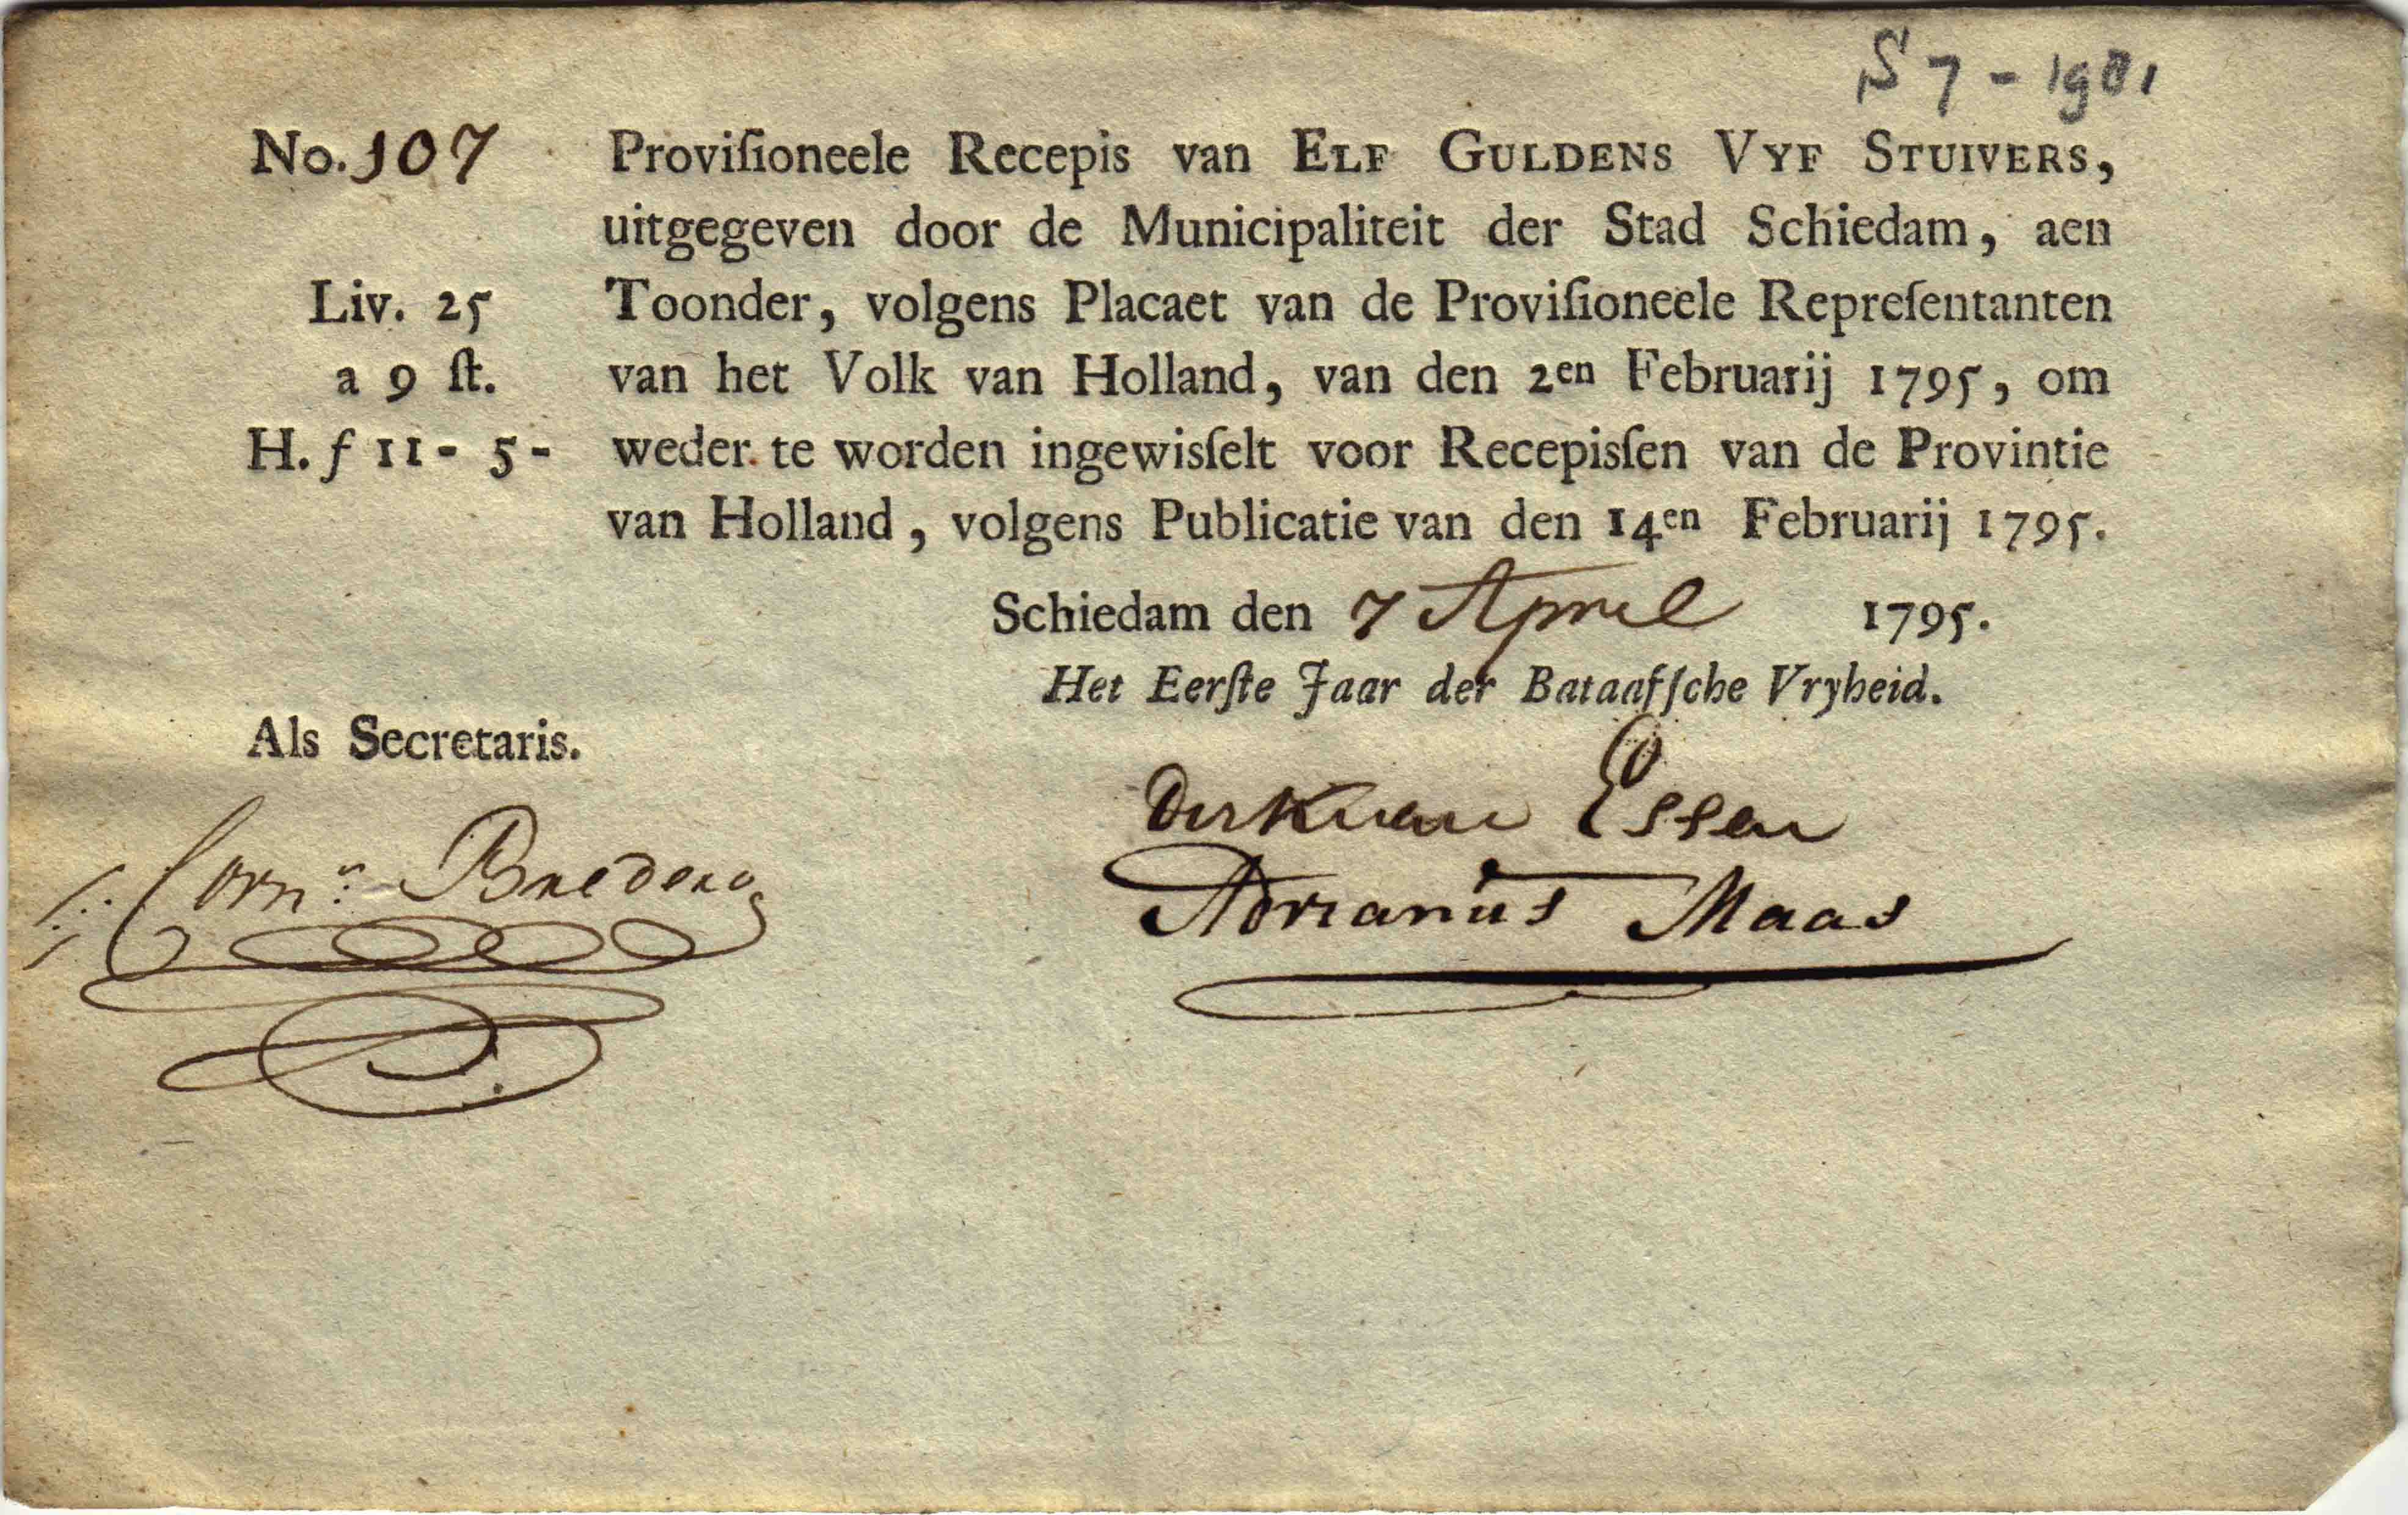 S 7 - 1981
No. 107 Proviſioneele Recepis van ELF GULDENS VYF STUIVERS,
uitgegeven door de Municipaliteit der Stad Schiedam, aen
Liv. 25 Toonder, volgens Placaet van de Proviſioneele Repreſentanten
a 9 ſt. van het Volk van Holland, van den 2en Februarij 1795, om
H. f 11 - 5 - weder te worden ingewisſelt voor Recepisſen van de Provintie
van Holland, volgens Publicatie van den 14en Februarij 1795.
Schiedam den 7 April 1795.
Het Eerſte Jaar der Bataafſche Vryheid.
Als Secretaris.
Dirk van Essen
Corns: Bredero
Adrianus Maas